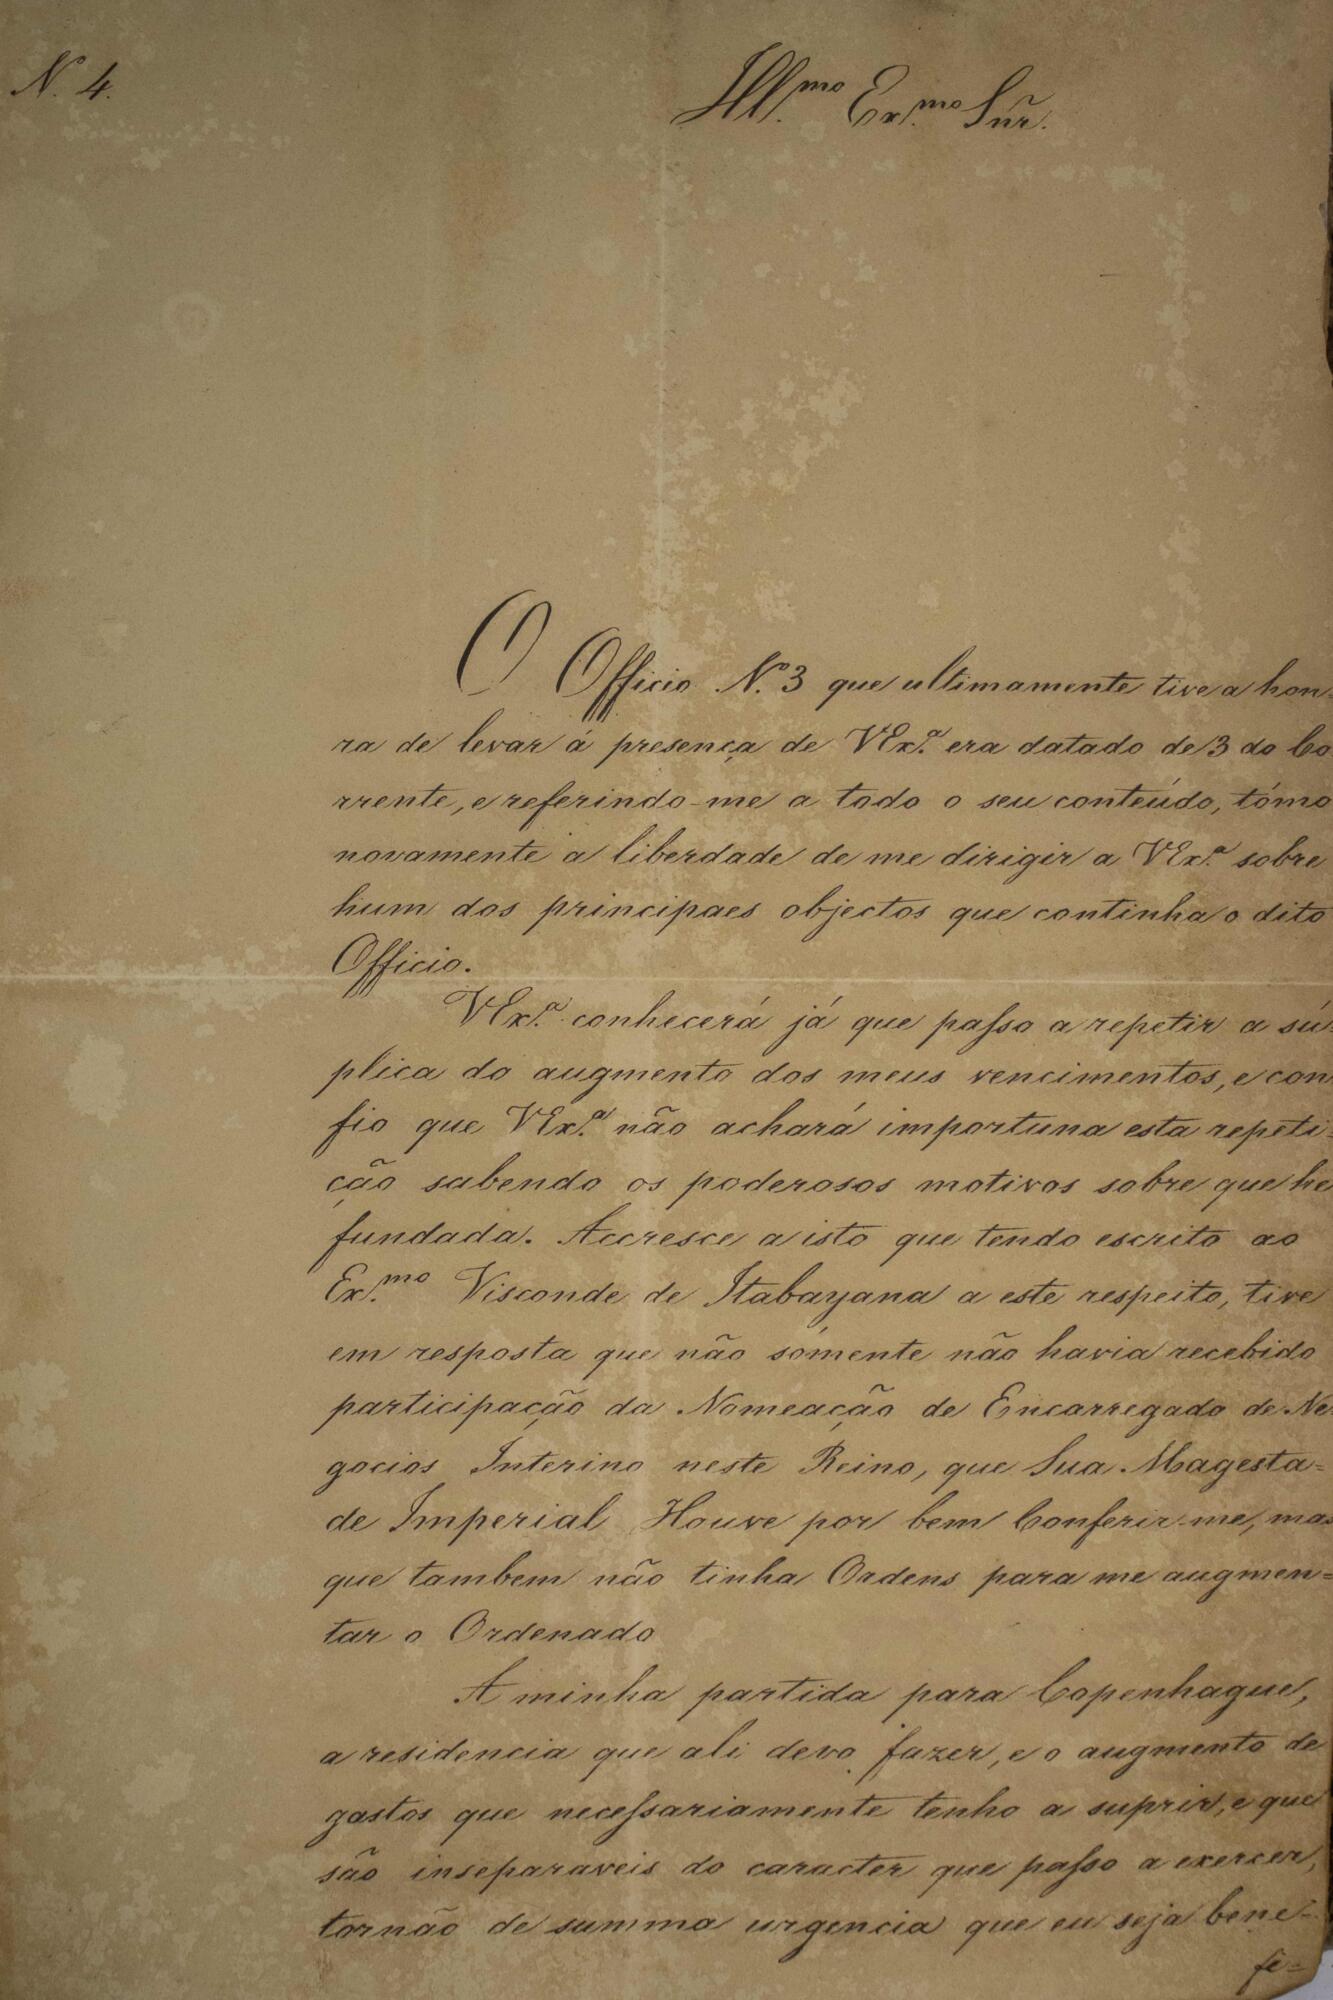 N. 4.
Ill.mo Ex.mo Sñr.
O Officio N.º 3 que ultimamente tive a hon-
ra de levar á presença de VEx.ª era datado de 3 do Co
rrente, e referindo-me a todo o seu conteúdo, tómo
novamente a liberdade de me dirigir a VEx.ª sobre
hum dos principaes objectos que continha o dito
Officio.
VEx.ª conhecerá já que paſso a repetir a sú-
plica do augmento dos meus vencimentos, e con
fio que VEx.ª não achará importuna esta repeti-
ção sabendo os poderosos motivos sobre que he
fundada. Accresce a isto que tendo escrito ao
Ex.mo Visconde de Itabayana a este respeito, tive
em resposta que não sómente não havia recebido
participação da Nomeação de Encarregado de Ne-
gocios Interino neste Reino, que Sua Magesta=
de Imperial Houve por bem Conferir-me, mas
que tambem não tinha Ordens para me augmen=
tar o Ordenado
A minha partida para Copenhague,
a residencia que ali devo fazer, e o augmento de
gastos que neceſsariamente tenho a suprir, e que
são inseparaveis do caracter que paſso a exercer,
tornão de summa urgencia que eu seja bene-
fi=